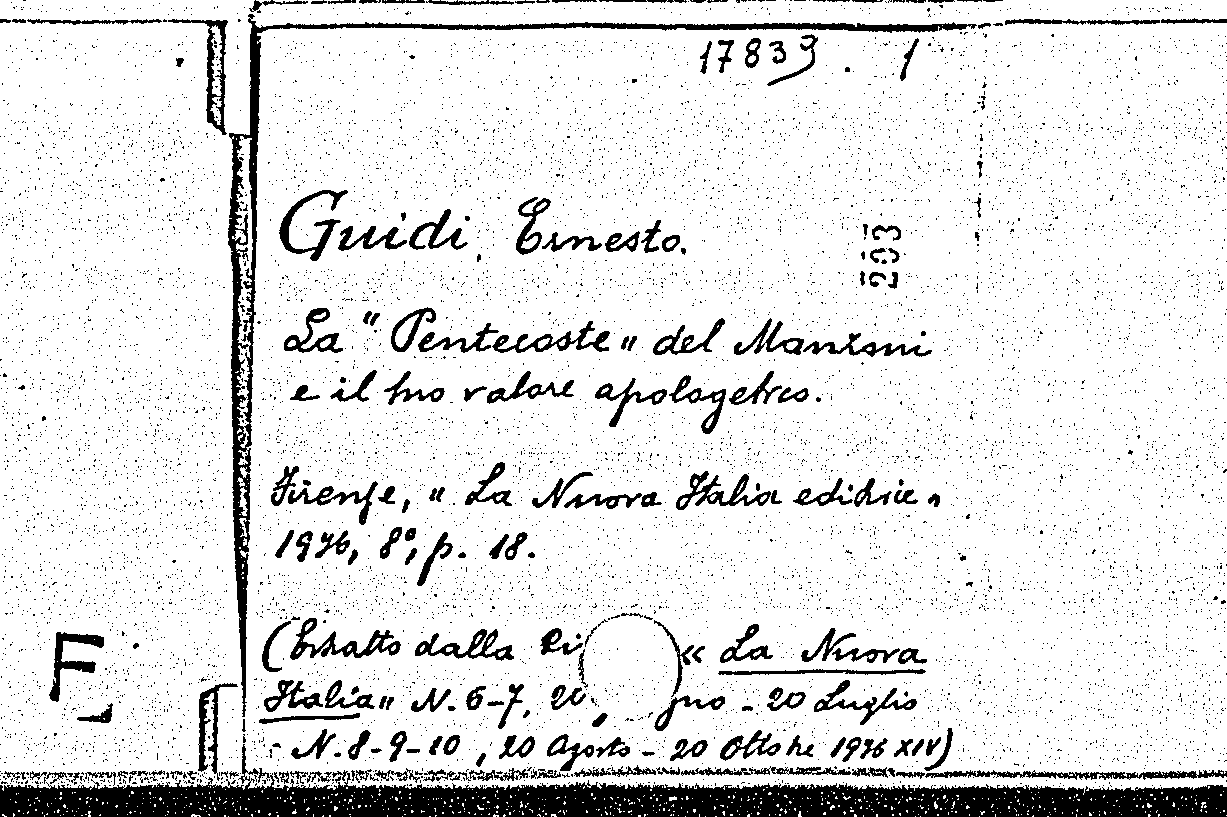 17839. 1
Guidi, Ernesto.
203
La "Pentecoste" del Manzoni
e il suo valore apologetico.
Firenze, "La Nuova Italia editrice"
1936, 8°, p. 18.
(Estratto dalla Ri « La Nuova
Italia" N. 6-7, 20 gno - 20 Luglio
- N. 8-9-10, 20 Agosto - 20 Ottobre 1936 XIV)
F